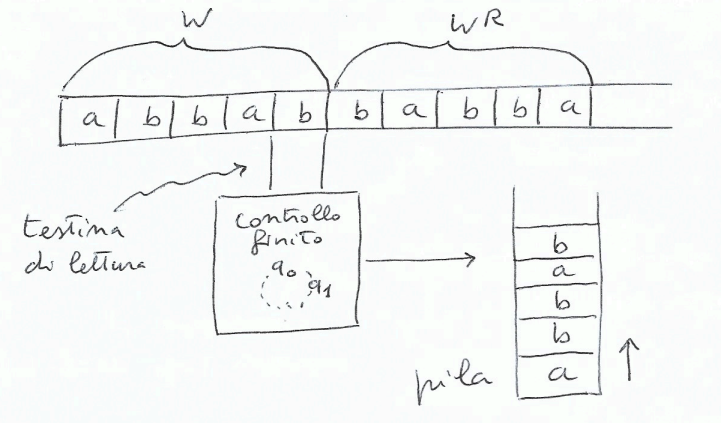 W WR
a b b a b b a b b a
testina
di lettura
controllo
finito
q0
q1
b
a
b
b
a
pila